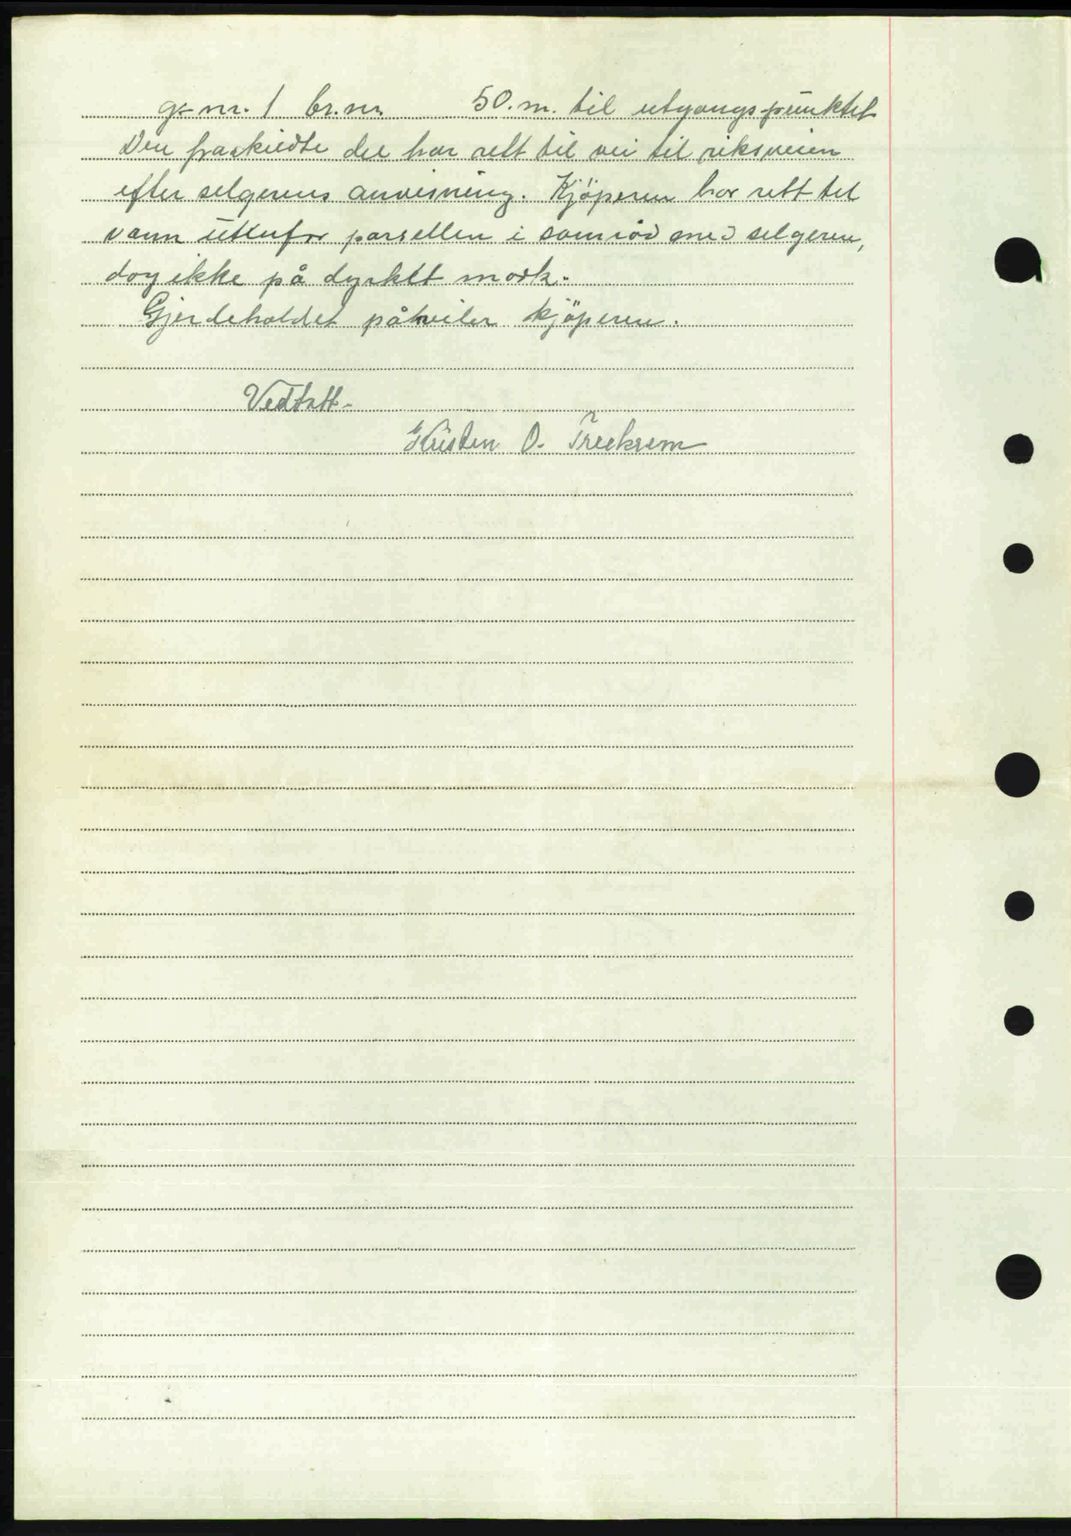 g.nr. 1 br.nr. 50. m. til utgangspunktet
Den fraskiedte del har rett til vei til riksveien
efter selgerens anvisning. Kjöperen har rett til
vann utenfor parsellen i samråd med selgeren,
dog ikke på dyrktt mark.
Gjerdeholdet påhviler kjöperen.
Vedtatt.
Kristen O. Treekrem